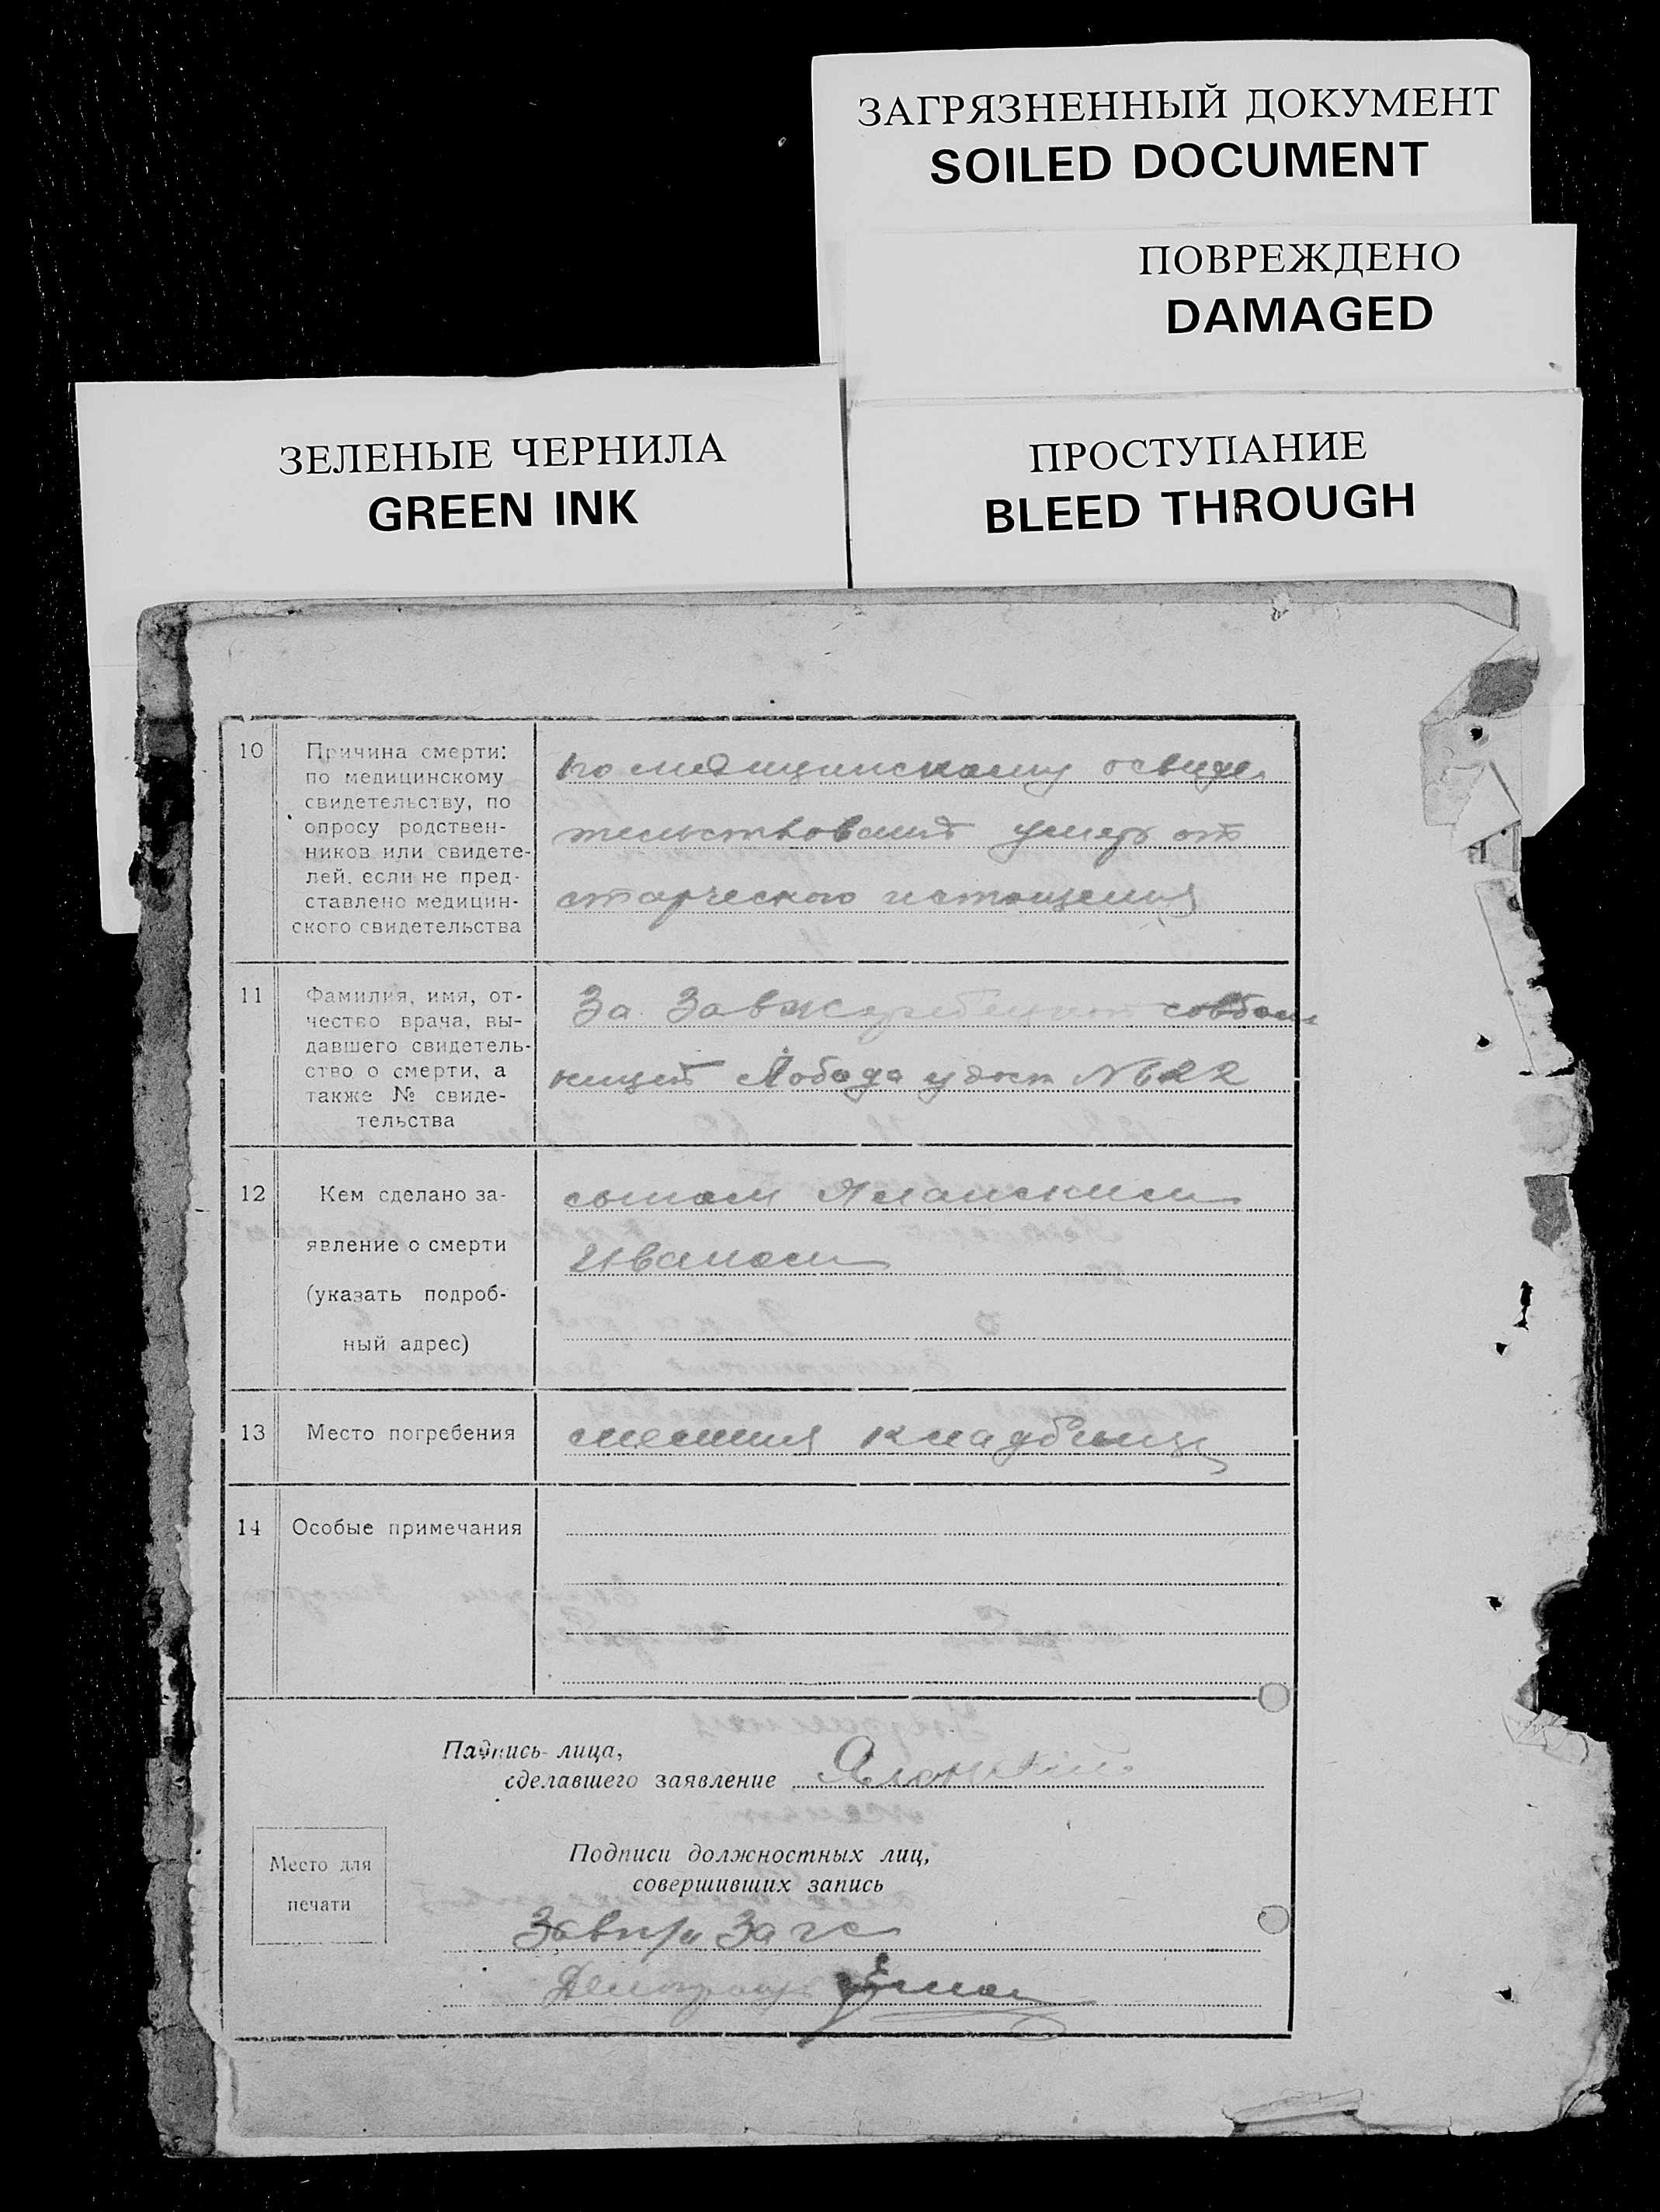 ЗАГРЯЗНЕННЫЙ ДОКУМЕНТ
SOILED DOCUMENT
ПОВРЕЖДЕНО
DAMAGED
ЗЕЛЕНЫЕ ЧЕРНИЛА
GREEN INK
ПРОСТУПАНИЕ
BLEED THROUGH
10
Причина смерти:
по медицинскому
свидетельству, по
опросу родствен-
ников или свидете-
лей, если не пред-
ставлено медицин-
ского свидетельства
по медицинскому освиде
тельствованию умер от
старческого истощения
11
Фамилия, имя, от-
чество врача, вы-
давшего свидетель-
ство о смерти, а
также № свиде-
тельства
За Зав
Лобода удост №622
12
Кем сделано за-
явление о смерти
(указать подроб-
ный адрес)
сыном
Иваном
13
Место погребения
кладбище
14
Особые примечания
Подпись лица,
сделавшего заявление
Место для
печати
Подписи должностных лиц,
совершивших запись
Загс